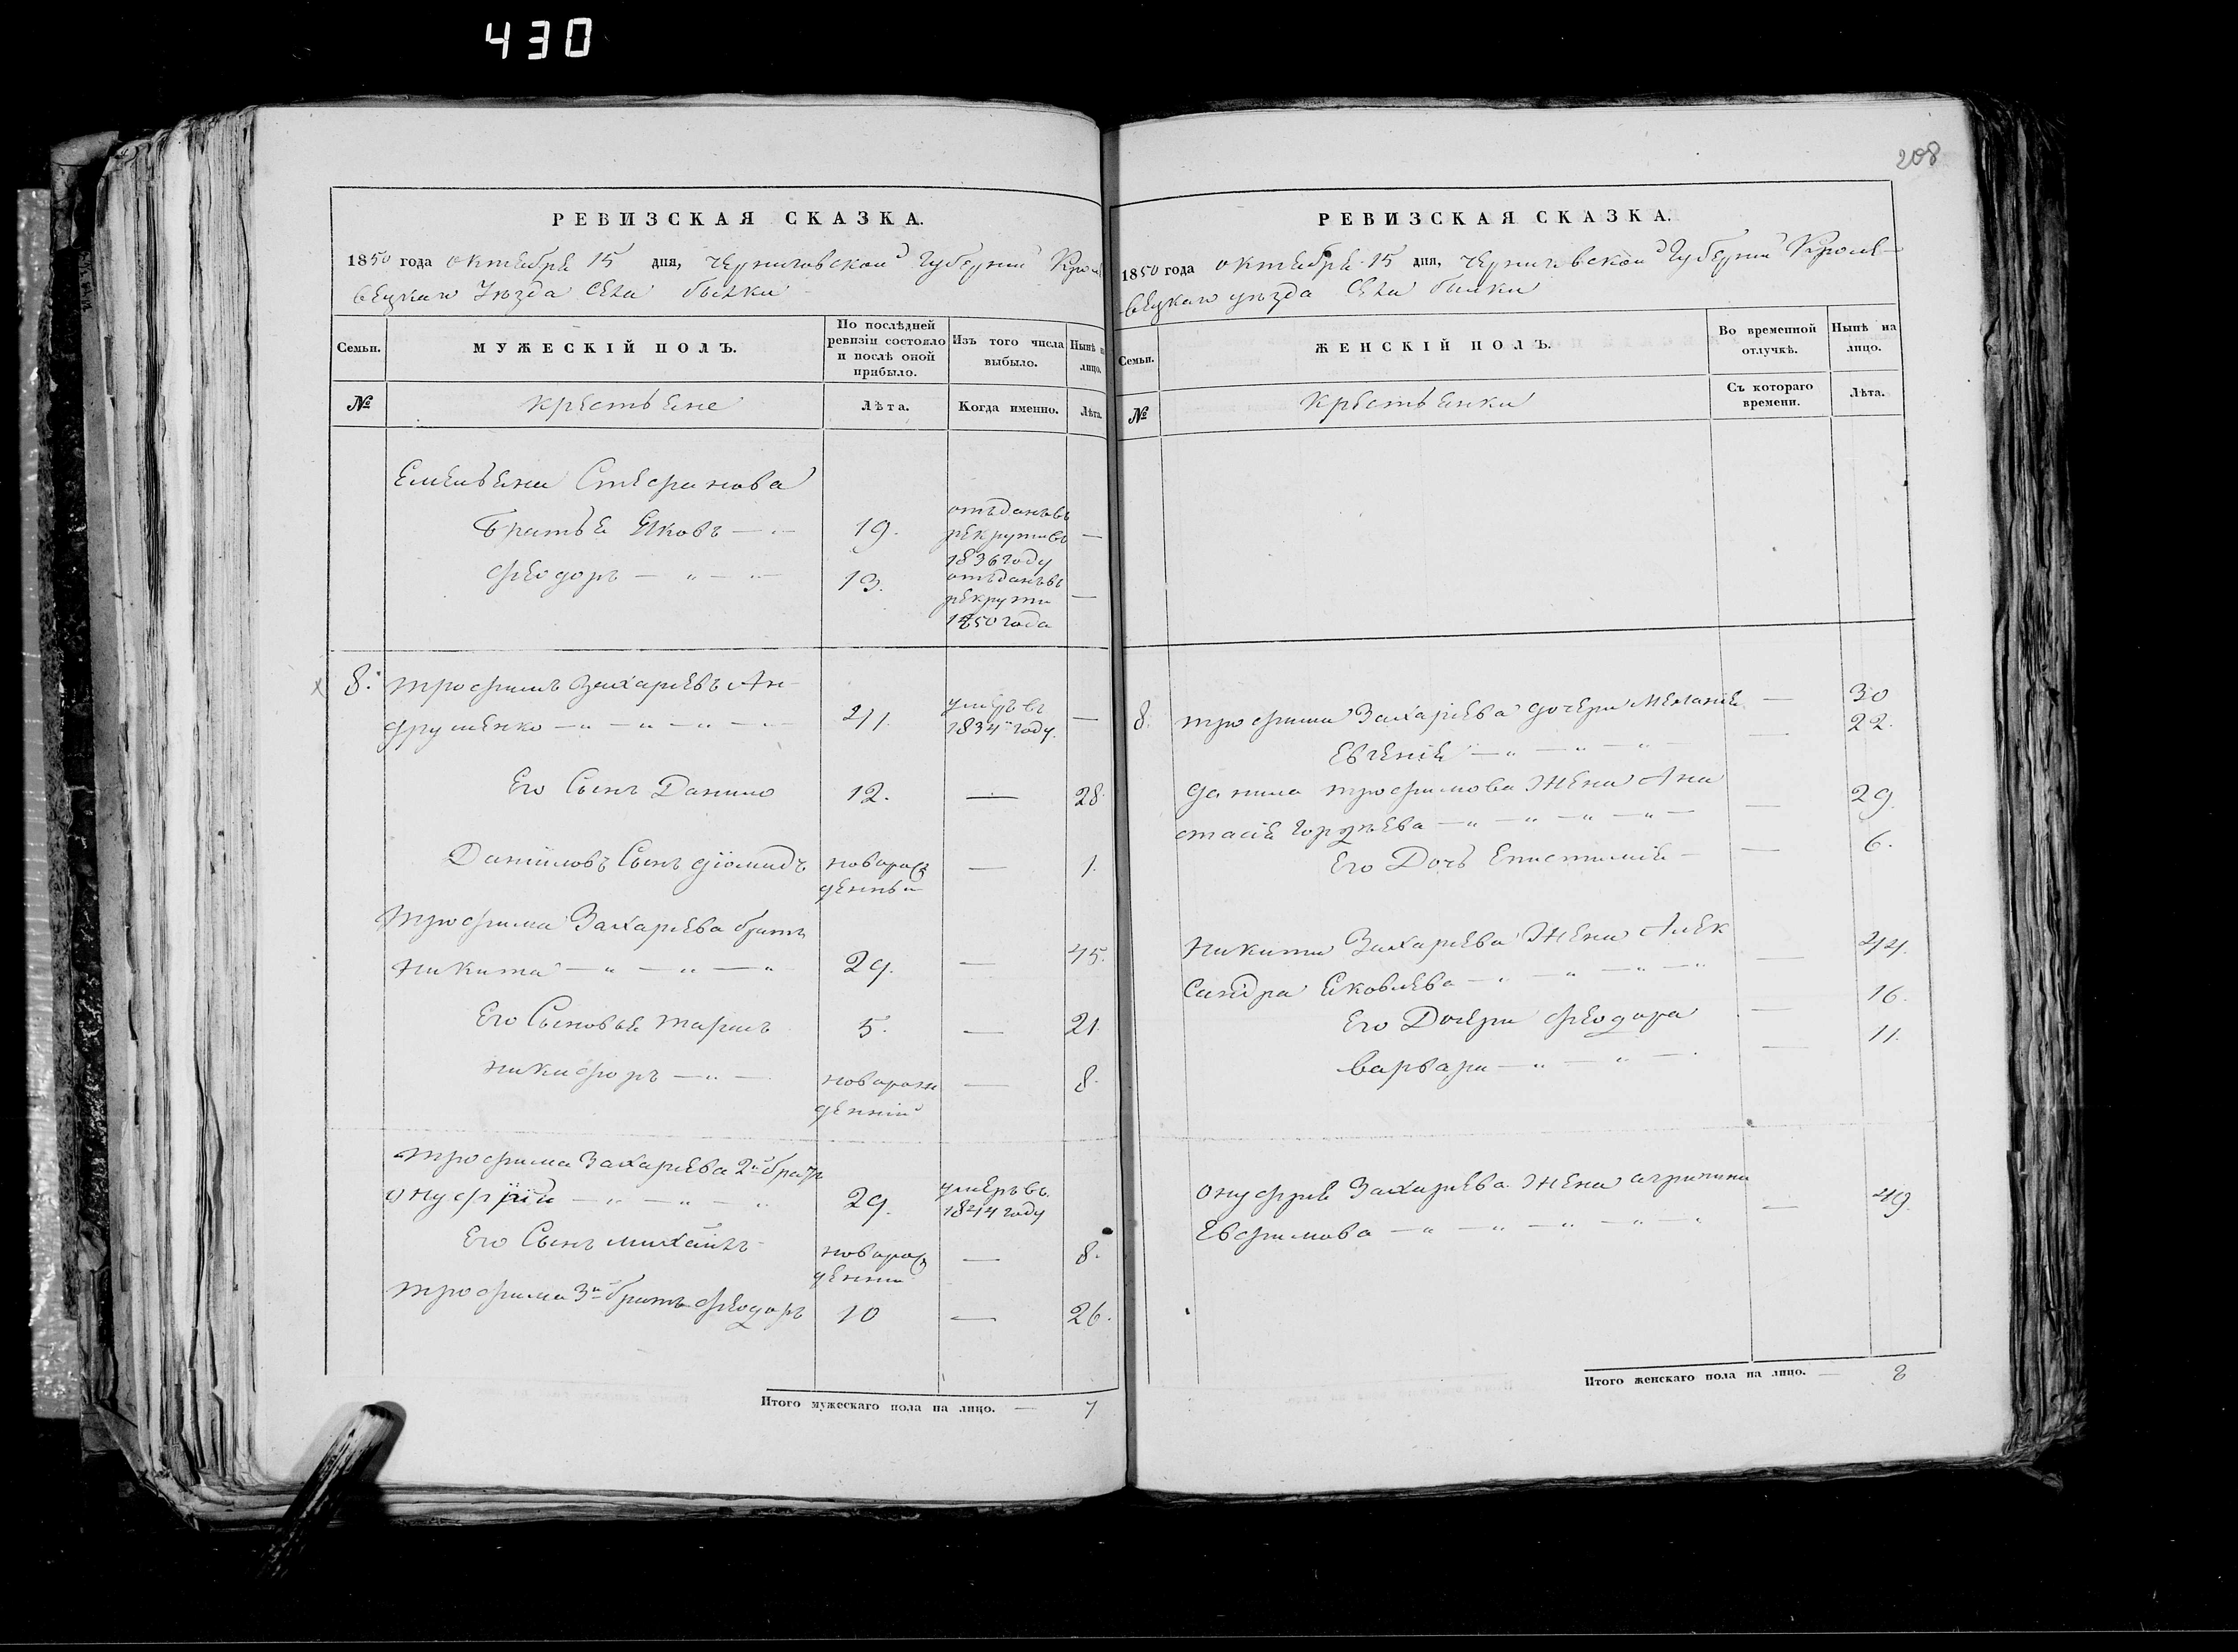 430
208
РЕВИЗСКАЯ СКАЗКА.
1850 года октября 15 дня, Черниговской Губернии Кроле
вецкаго Уѣзда Села Былки
Семьи.
МУЖЕСКІЙ ПОЛЪ.
По послѣдней
ревизіи состояло
и послѣ оной
прибыло.
Изъ того числа
выбыло.
Нынѣ н
лицо.
№
крестьяне
Лѣта.
Когда именно.
Лѣта.
Емельяна Стефанова
Братья Яковъ 19. отъданъ въ
рекруты въ
1836 году —
Феодоръ 13. отъданъ въ
рекруты
1850 года —
8. Трофимъ Захаріевъ Ан-
друшенко 41. умеръ въ
1834 году. —
Его Сынъ Данило 12. — 28.
Даніиловъ Сынъ Діомидъ новорож
денный — 1.
Трофима Захаріева братъ
Никита 29. — 45.
Его Сыновья Тарасъ 5. — 21.
Никифоръ новорож
денній — 8.
Трофима Захаріева 2й братъ
Онуфрій 29. умеръ въ
1844 году
Его Сынъ Михаилъ новорож
денни — 8.
Трофима 3й братъ Феодоръ 10 — 26.
Итого мужескаго пола на лицо. — 7
РЕВИЗСКАЯ СКАЗКА.
1850 года октября 15 дня, Черниговской Губерніи Кролев-
вецкаго уѣзда Села былки
Семьи.
ЖЕНСКІЙ ПОЛЪ.
Во временной
отлучкѣ.
Нынѣ на
лицо.
№
Крестьянки
Съ котораго
времени.
Лѣта.
8. Трофима Захаріева дочери Меланія — 30
Евгенія — 22.
Данила Трофимова Жена Ана
стасія Гордѣева — 29.
Его Дочь Епистимія — 6.
Никиты Захаріева Жена Алек
сандра Яковлева — 44.
Его Дочери Феодора — 16.
Варвара — 11.
Онуфрія Захаріева Жена Агрипина
Евфимова — 49.
Итого женскаго пола на лицо. — 8